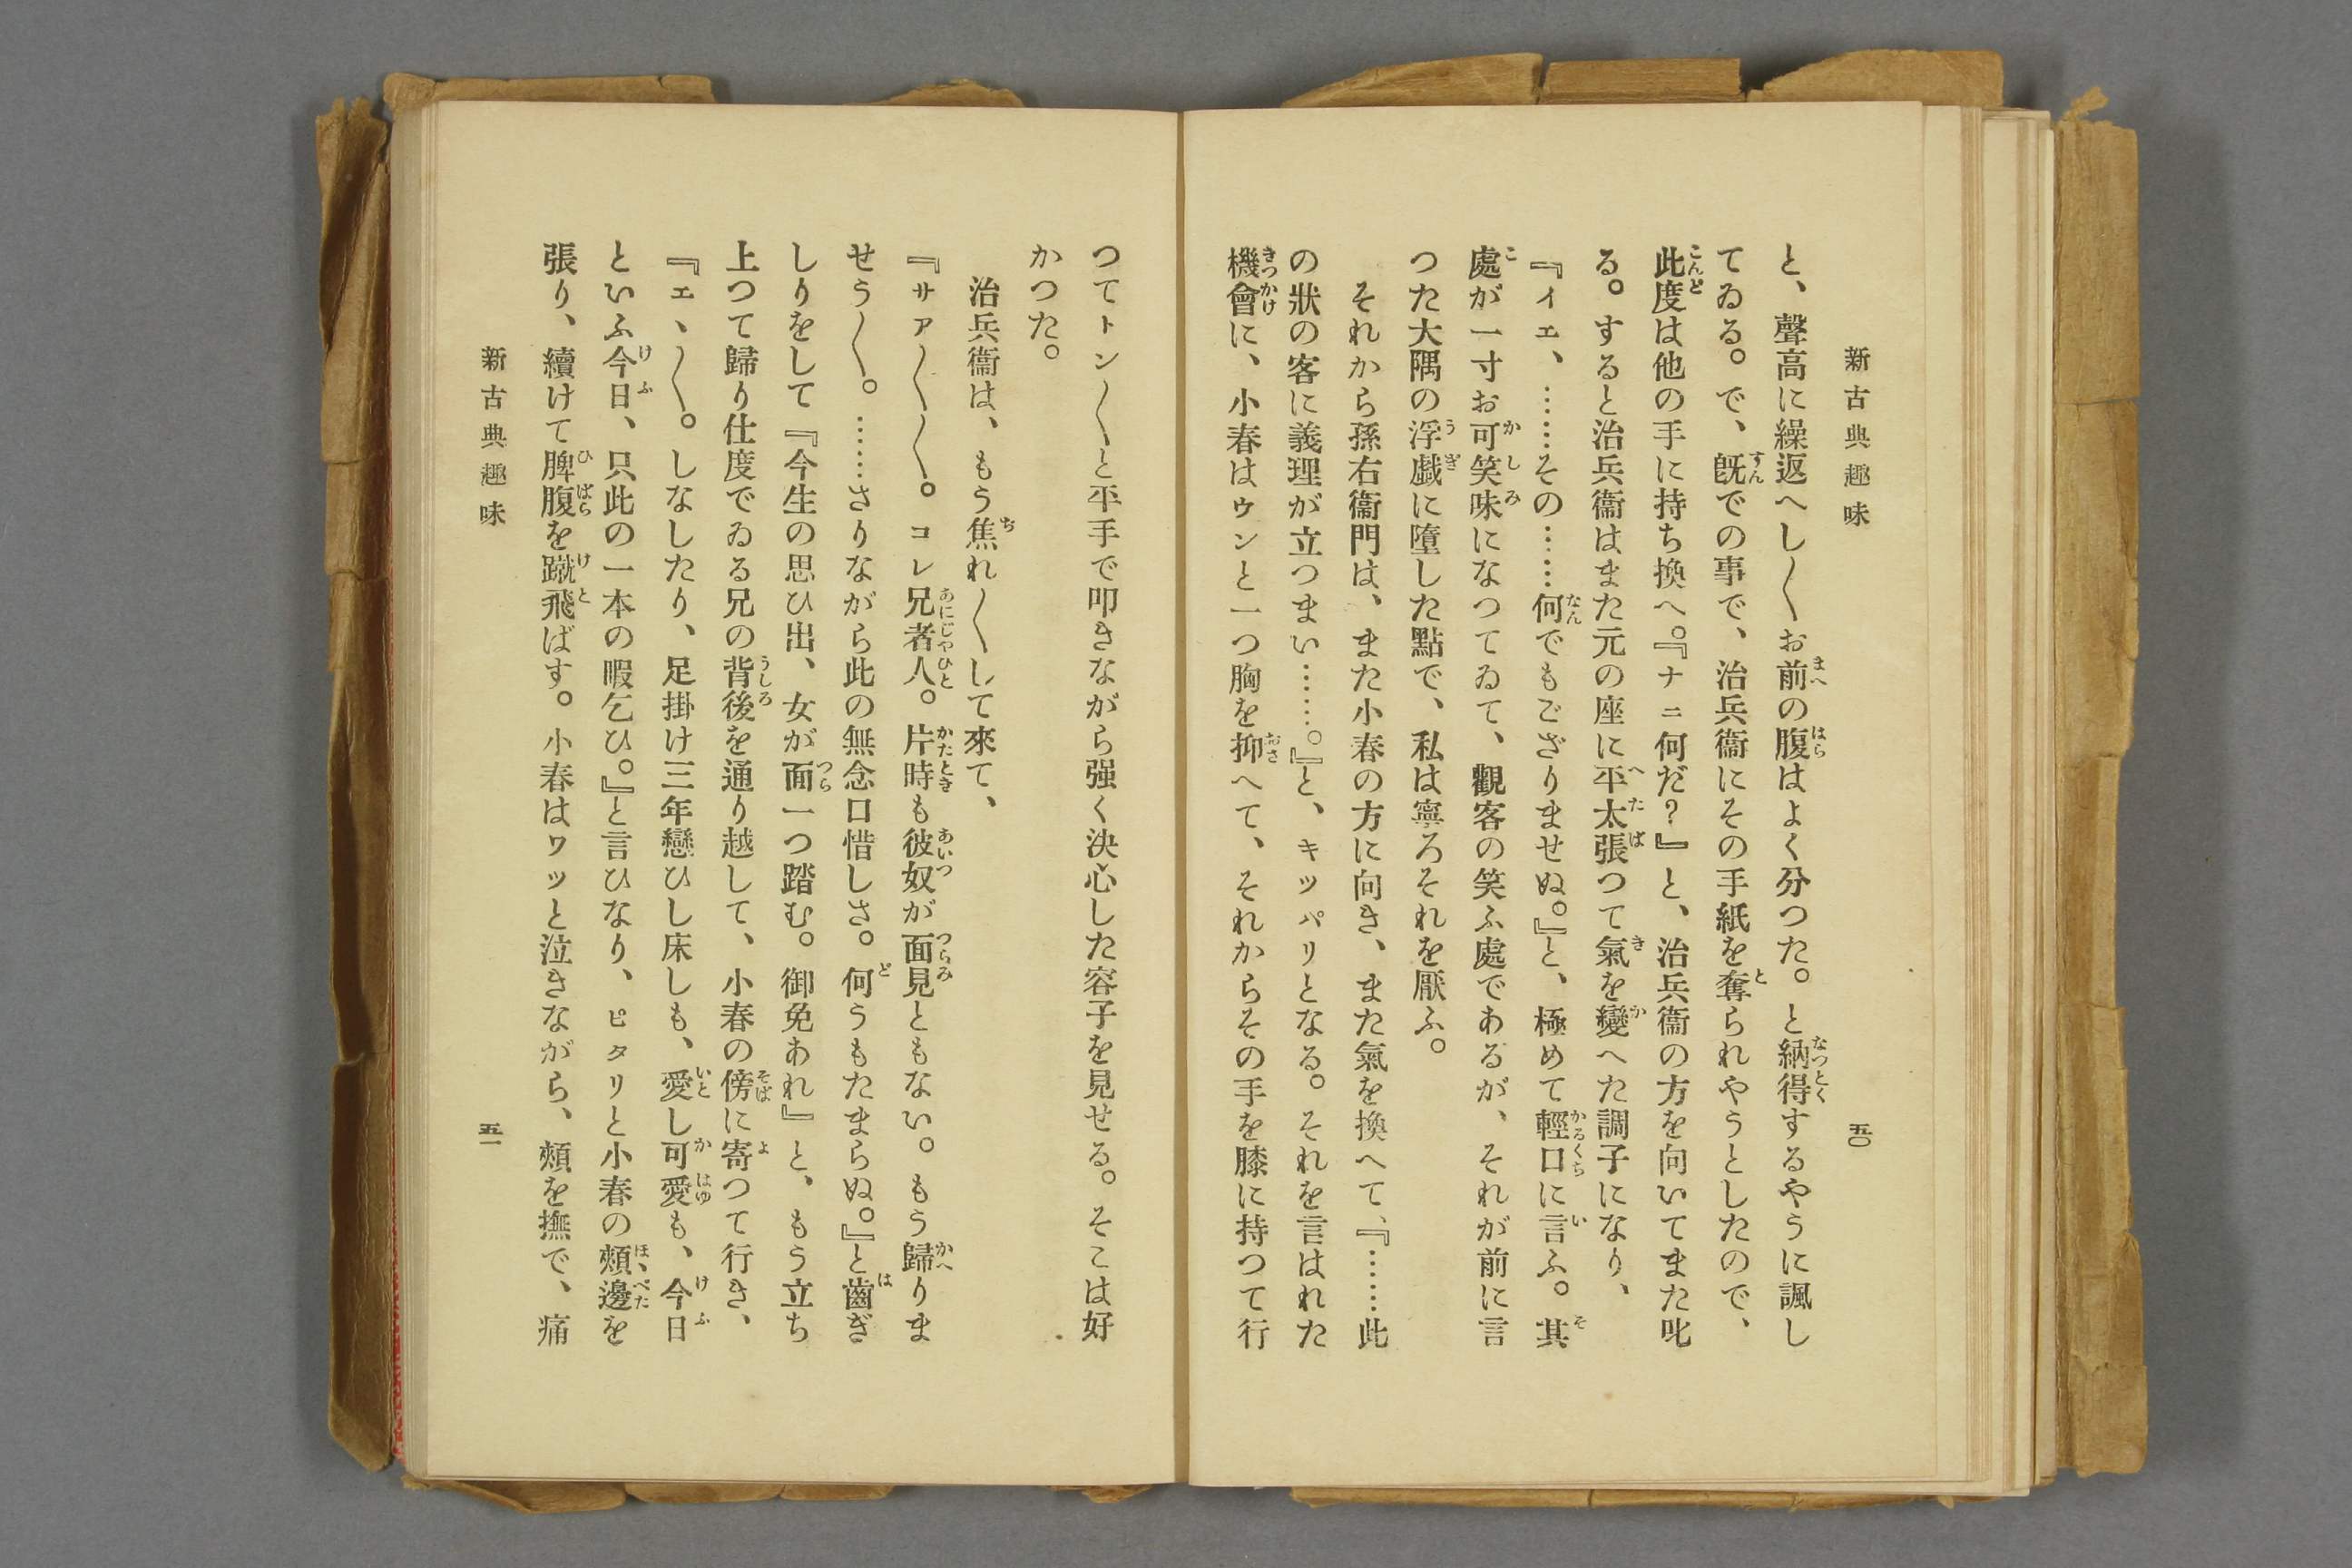 新古典趣味
五〇
と、聲高に繰返へし〱お前の腹はよく分つた。と納得するやうに諷し
てゐる。で、旣での事で、治兵衞にその手紙を奪られやうとしたので、
此度は他の手に持ち換へ。『ナニ何だ？』と、治兵衞の方を向いてまた叱
る。すると治兵衞はまた元の座に平太張つて氣を變へた調子になり、
『イエ、……その……何でもござりませぬ。』と、極めて輕口に言ふ。其
處が一寸お可笑味になつてゐて、觀客の笑ふ處であるが、それが前に言
つた大隅の浮戯に墮した點で、私は寧ろそれを厭ふ。
それから孫右衞門は、また小春の方に向き、また氣を換へて、『……此
の狀の客に義理が立つまい……。』と、キッパリとなる。それを言はれた
機會に、小春はウンと一つ胸を抑へて、それからその手を膝に持つて行
つてトン〱と平手で叩きながら强く決心した容子を見せる。そこは好
かつた。
治兵衞は、もう焦れ〱して來て、
『サア〱〱。コレ兄者人。片時も彼奴が面見ともない。もう歸りま
せう〱。……さりながら此の無念口惜しさ。何うもたまらぬ。』と齒ぎ
しりをして『今生の思ひ出、女が面一つ踏む。御免あれ』と、もう立ち
上つて歸り仕度でゐる兄の背後を通り越して、小春の傍に寄つて行き、
『エヽ〱。しなしたり、足掛け三年戀ひし床しも、愛し可愛も、今日
といふ今日、只此の一本の暇乞ひ。』と言ひなり、ピタリと小春の頰邊を
張り、續けて脾腹を蹴飛ばす。小春はワッと泣きながら、頰を撫で、痛
新古典趣味
五一